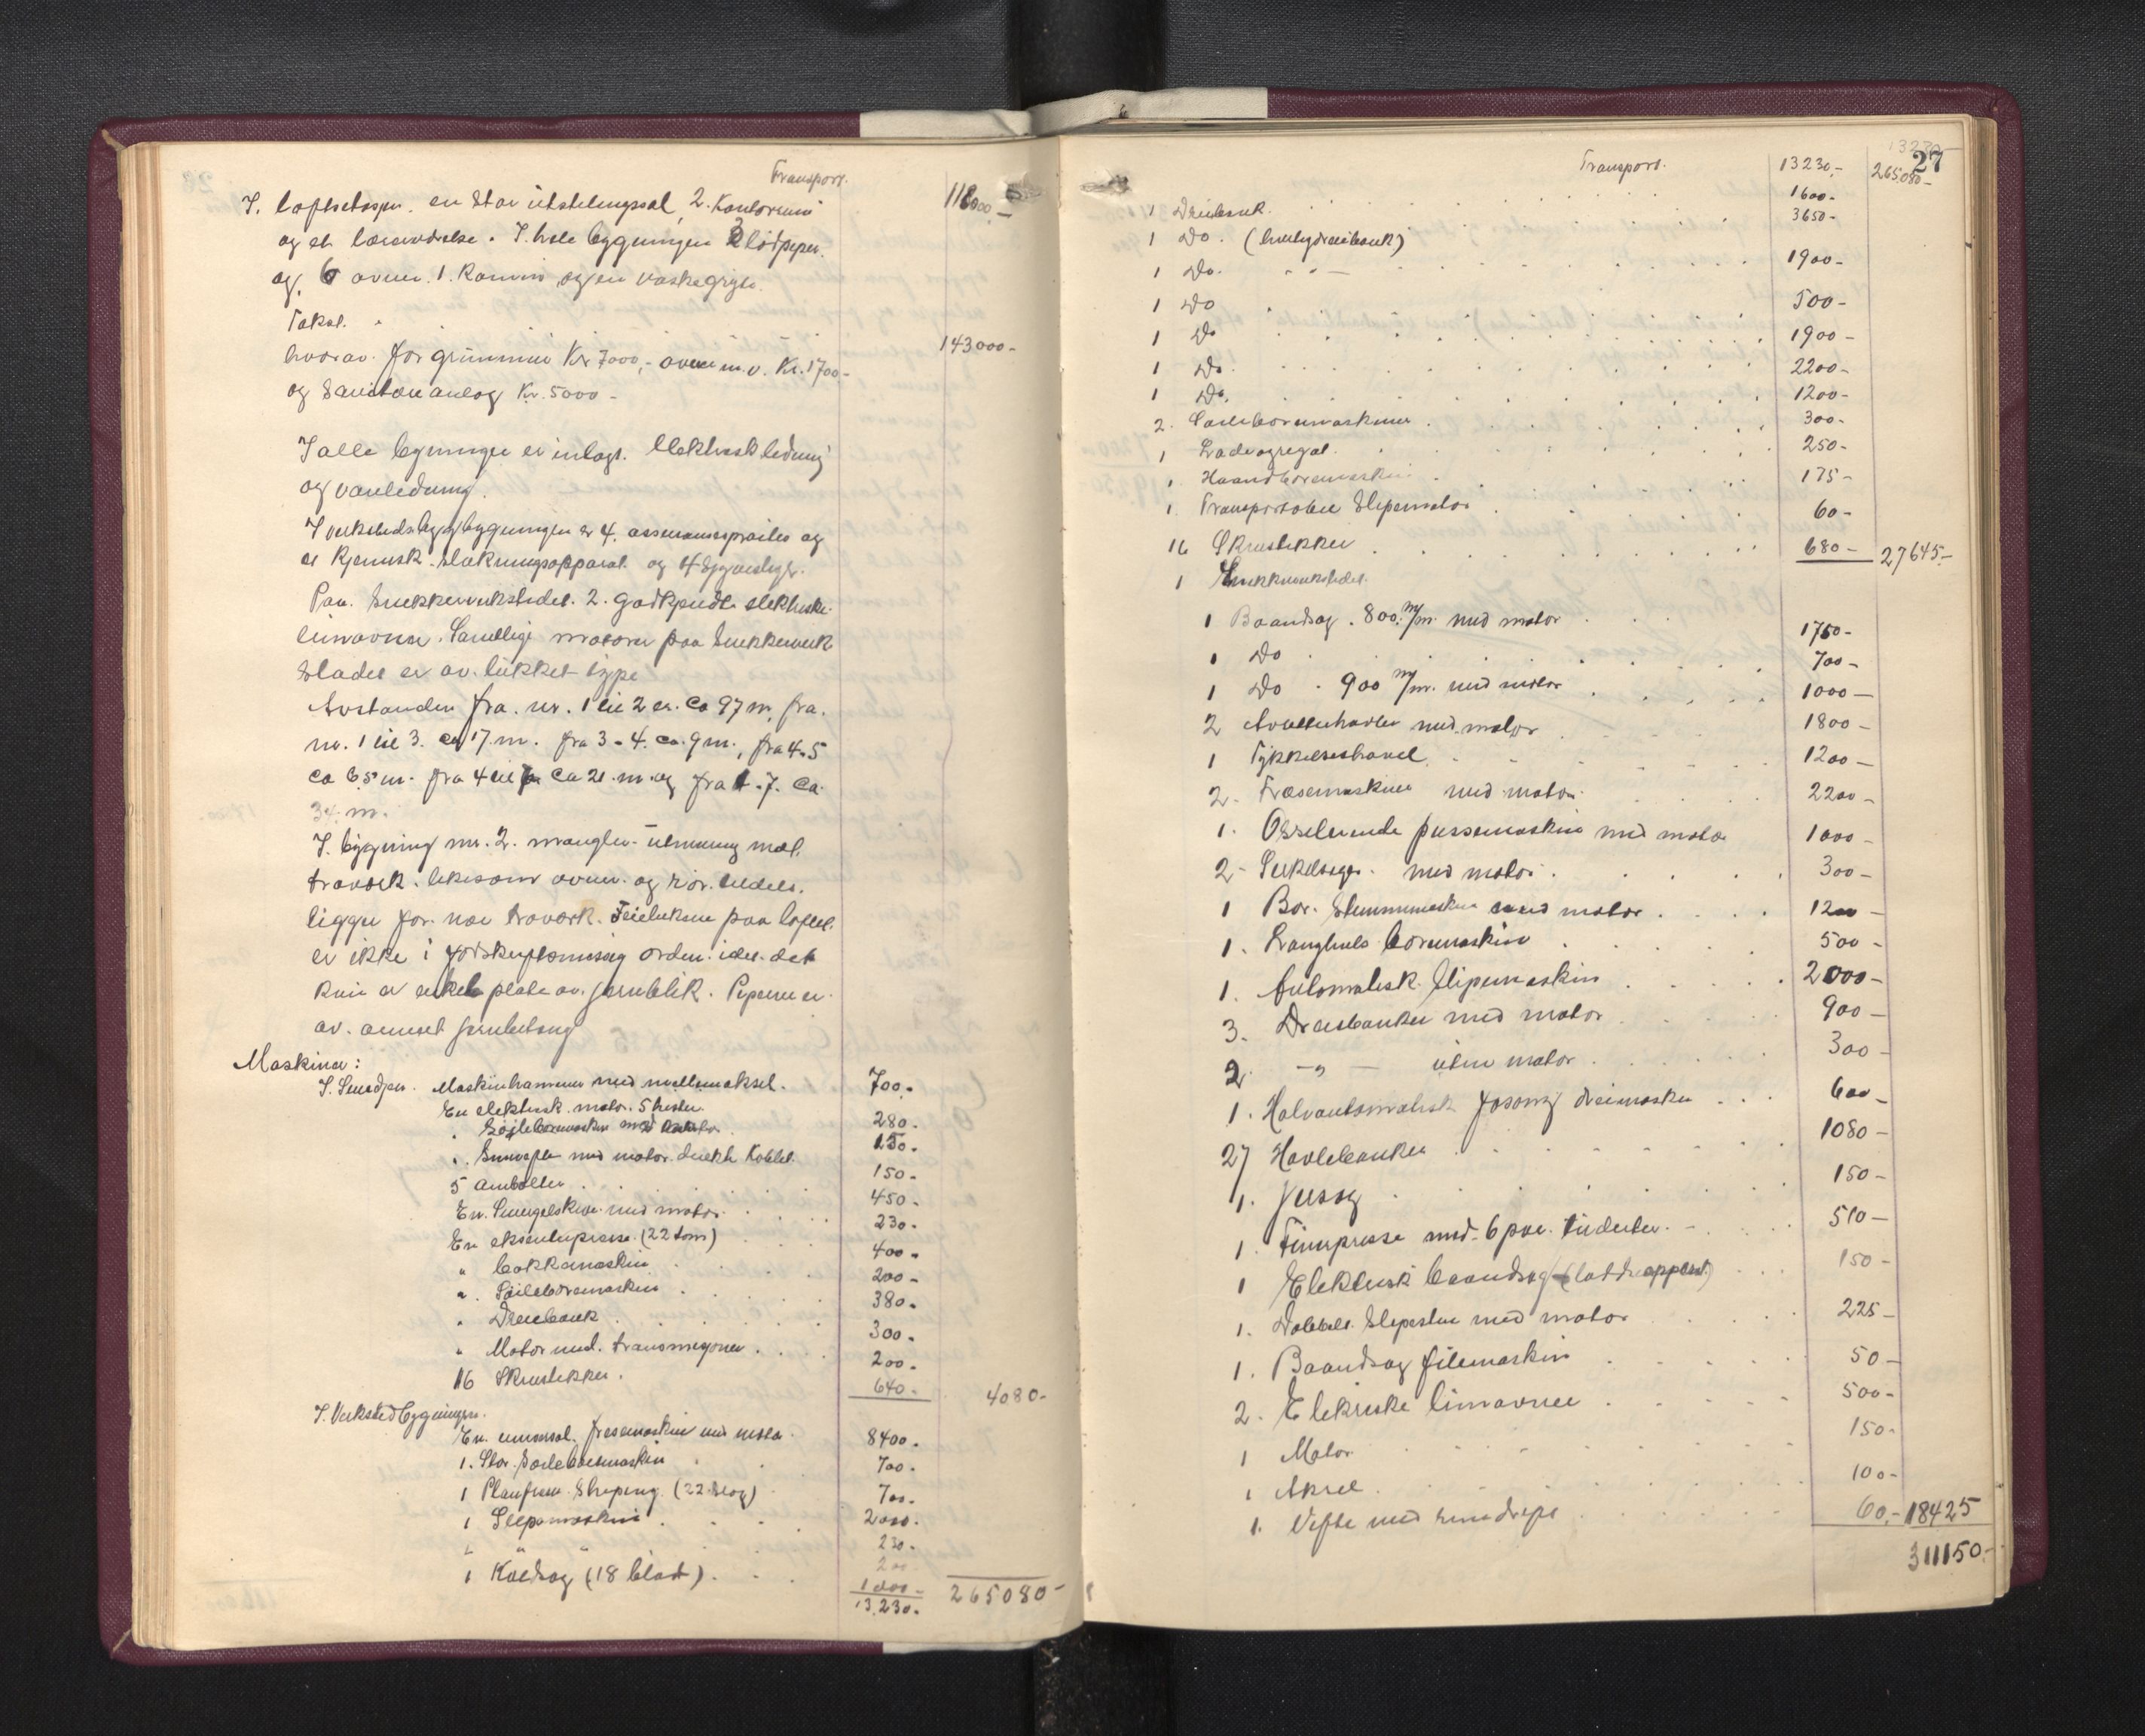 Transport.
I. loftsetasjen. en stor utstelingssal, 2. Kontorrum 118000,-
og et læreværelse. I hele bygningen 2 løpiper.
og 6 ovner. 1. Kamin og en vaskegryte.
Takst. 143000-
hvorav. for grunnmur Kr 7000,- ovner m.v. Kr. 1700-
og Sanitæranlæg Kr. 5000-
I alle bygninger er inlagt. Elektrisk ledning
og vanledning.
I verkstedsbygbygningen er 4. assuransesprøiter og
et Kjemisk. Slukningsapparat og 4
Paa. Snekkerverkstedet. 2. godkjendte elektriske
limovner. Samtlige motorer paa Snekkerverk
stedet er av. lukket type
Avstanden fra. nr. 1 til 2 er. Ca 97 m, fra.
nr. 1 til 3. ca 17. m. fra 3-4. ca. 9 m., fra 4-5
ca 6,5 m. fra 4 til Ca 21. m. og fra 1-7. Ca.
34. m.
I. bygning nr. 2. mangler utmuring mot.
trævерk. likesom ovner. og rør. tildels.
ligger for. nær træverk. Feielukene paa loftet.
er ikke i forskriftsmessig orden. idet. det
kun er enkel plate av. jernblik. Piperne er.
av. armert jernbetong
Maskiner:
I. Smedjen. Maskinhammer med mellemaksel. 700.
En elektrisk. motor. 5 hester. 280.
" Søileboremaskin med motor 150.
" med motor direkte koblet. 150.
5 Ambolter 450.
En. Smergelskive. med motor. 230.
En eksenterpresse. (22 tons) 400.
" bokkemaskin 200-
" Søileboremaskin 380.
" Dreiebenk 300.
" Motor med. transmisjoner. 200.
16 Skrustikker. 640. 4080-
I. Verkstedbygningen.
En. universal. fræsemaskin med motor. 8400.
1. Stor. Søileboremaskin 700.
1 Shaping. (22. slag) 700.
1 Slipemaskin 2000.
" " " 230.
200
1 Kaldsag (18 blad) 1000-
13,230. 265080-
13230-
27
Transport. 13230,- 265080-
1 Dreiebenk. 1600-
1 Do. (hurtigdreiebenk) 3650-
1 Do. -"- 1900-
1 Do 500-
1 Do 1900-
1 Do. 2200-
1 Do. 1200-
2. Søileboremaskiner 300-
1 Ladeagregat. 250-
1. Haandboremaskin 175-
1. Transportable Slipemotor 60-
16 Skrustikker 680- 27645-
1 Snekkerverkstedet.
1 Baandsag. 800 m/m. med motor 1750-
1 Do 700-
1 Do. 900 m/m. med motor 1000-
2 Avretterhøvler med motor 1800-
1 Tykkelseshøvel 1200-
2. Fræsemaskiner med motor. 2200-
1. Osselerende pussemaskin med motor 1000-
2- Sirkelsager. med motor. 300-
1 Bor. Stemmemaskin med motor. 1200-
1. Langhuls boremaskin 500-
1. Automatisk. Slipemaskin 2000-
3. Dreiebenker med motor 900-
2. -"- uten motor 300-
1. Halvautomatisk dreiemaskin 600-
27 Høvlebenker 1080-
1. 150-
1. Finerpresse med 6 par. 510-
1 Elektrisk baandsag 150-
1. Dobbelt Slipesten med motor 225-
1. Baandsag filemaskin 50-
2. Elektriske limovner 500-
1 Motor 150-
1 Aksel 100-
1. Vifte med 60,- 18425
311150-